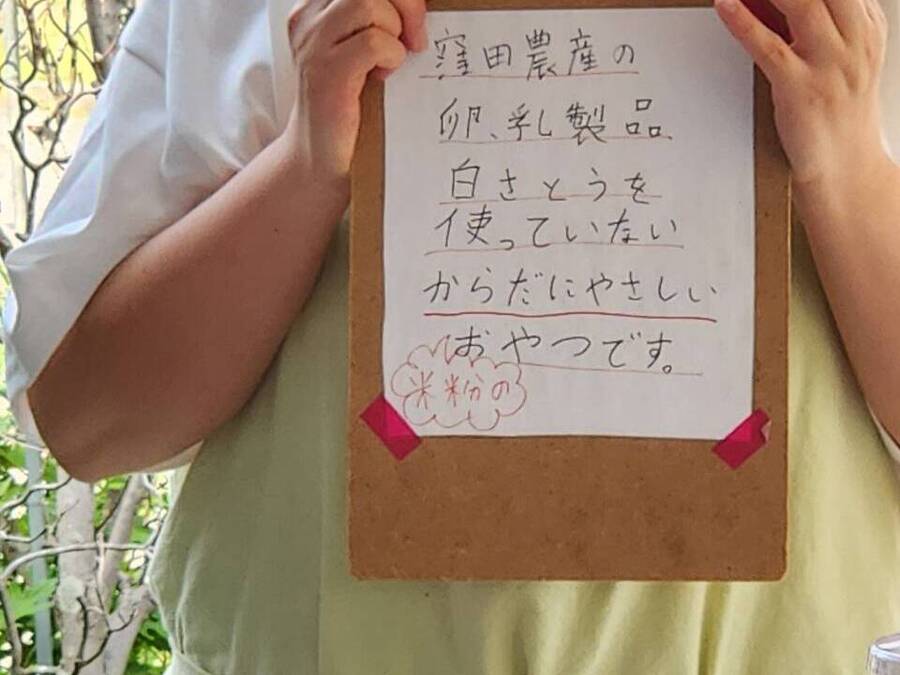 窪田農産の
卵、乳製品、
白さとうを
使っていない
からだにやさしい
おやつです。
米粉の